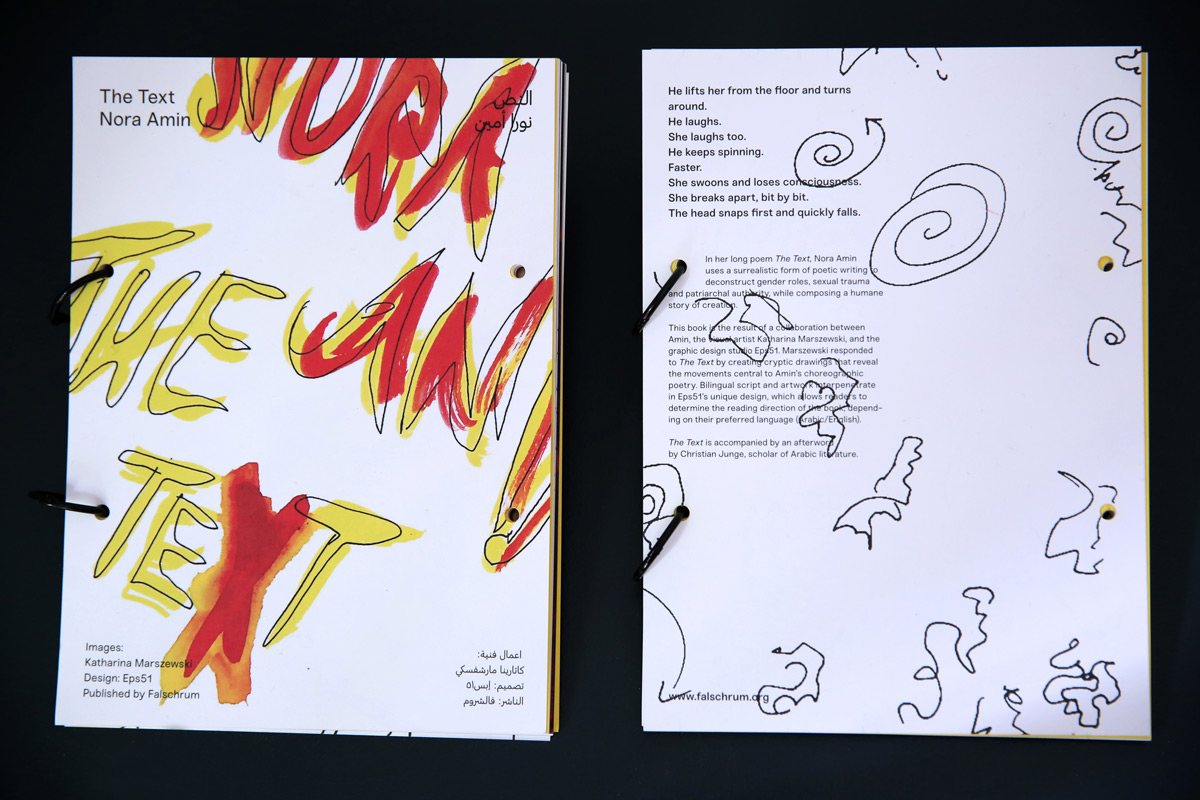 The Text
Nora Amin
النص
نورا أمين
NORA
THE
AMIN
TEXT
Images:
Katharina Marszewski
Design: Eps51
Published by Falschrum
اعمال فنية:
كاتارينا مارشفسكي
تصميم: إبس٥١
الناشر: فالشروم
He lifts her from the floor and turns
around.
He laughs.
She laughs too.
He keeps spinning.
Faster.
She swoons and loses consciousness.
She breaks apart, bit by bit.
The head snaps first and quickly falls.
In her long poem The Text, Nora Amin
uses a surrealistic form of poetic writing to
deconstruct gender roles, sexual trauma
and patriarchal authority, while composing a humane
story of creation.
This book is the result of a collaboration between
Amin, the visual artist Katharina Marszewski, and the
graphic design studio Eps51. Marszewski responded
to The Text by creating cryptic drawings that reveal
the movements central to Amin's choreographic
poetry. Bilingual script and artwork interpenetrate
in Eps51's unique design, which allows readers to
determine the reading direction of the book, depend-
ing on their preferred language (Arabic/English).
The Text is accompanied by an afterword
by Christian Junge, scholar of Arabic literature.
www.falschrum.org